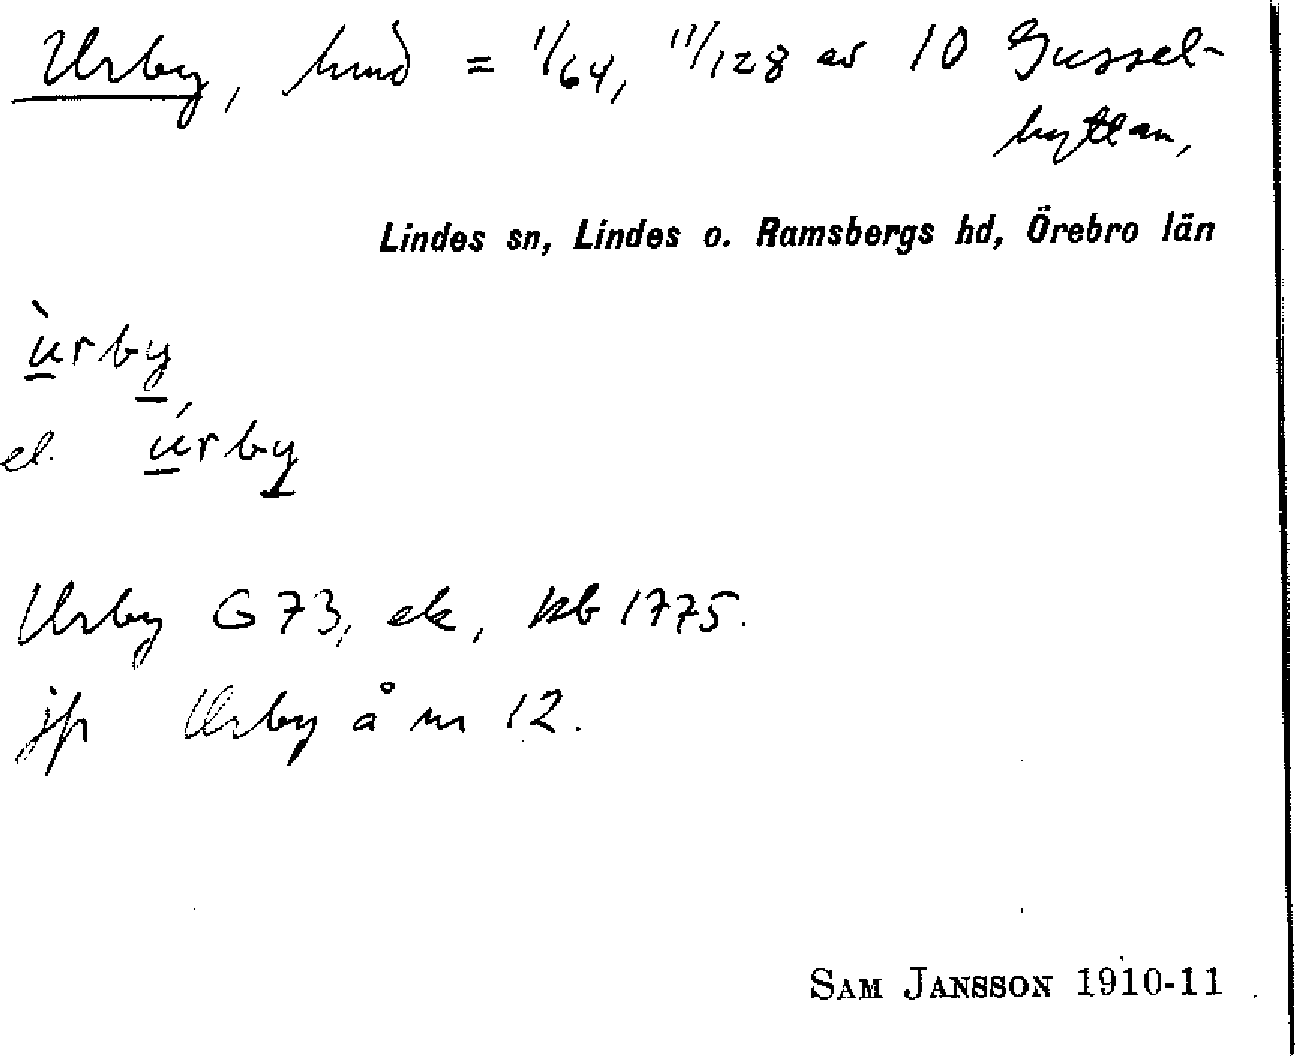 Urby, hmd = 1/64, 11/128 av 10 Gussel-
hyttan,
Lindes sn, Lindes o. Ramsbergs hd, Örebro län
ùrby
el. úrby
Urby G 73, ek, kb 1775.
jfr Urby å nr 12.
SAM JANSSON 1910-11